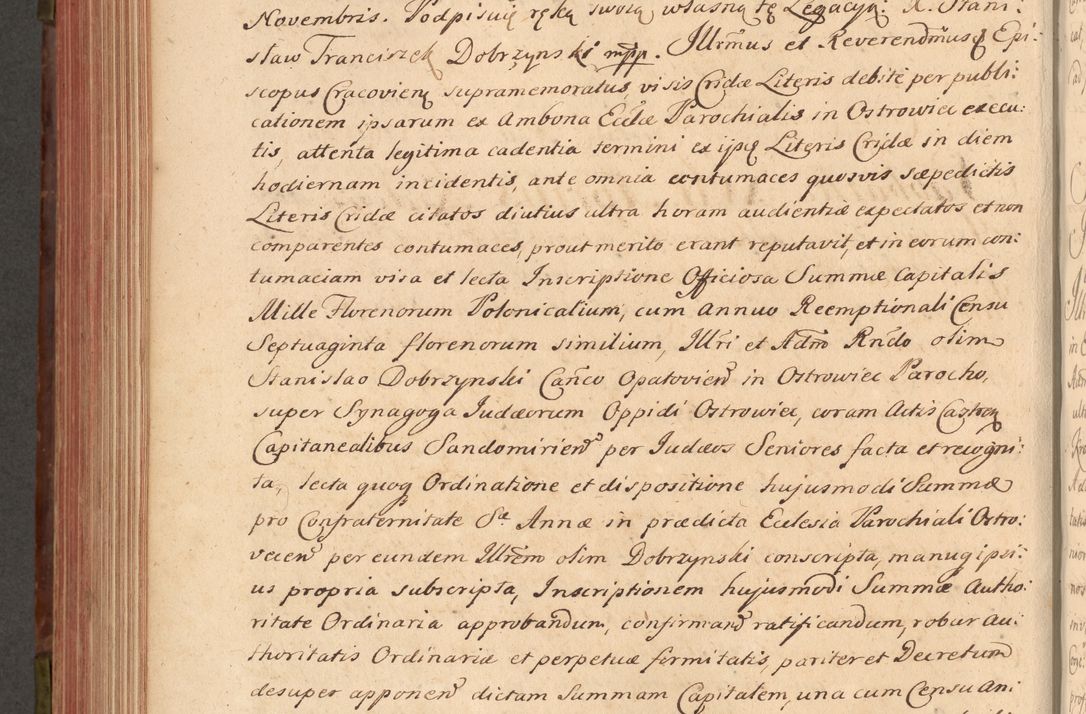 Novembris. Podpisuię ręką swoią własną tę Legacyą: X. Stani:
sław Franciszek Dobrzynski mpp. Illrmus et Reverendmusq Epi:
scopus Cracovienẹ supramemoratus, visis Cridæ Literis debitè per publi:
cationem ipsarum ex Ambona Ecclæ Parochialis in Ostrowiec execu:
tis, attenta legitima cadentia termini ex ijsq Literis Cridæ in diem
hodiernam incidentis, ante omnia contumaces quosvis sæpedictis
Literis Cridæ citatos diutius ultra horam audientiæ expectatos et non
comparentes contumaces, prout merito erant reputavit, et in eorum con:
tumaciam visa et lecta Inscriptione Officiosa Summæ Capitalis
Mille Florenorum Polonicalium, cum Annuo Reemptionali Censu
Septuaginta florenorum similium, Illri et Admo Rndo olim
Stanislao Dobrzynski Canco Opatovien in Ostrowiec Parocho,
super Synagoga Judæorum Oppidi Ostrowiec, coram Actis Castren
Capitanealibus Sandomirien per Judæos Seniores facta et recogni:
ta, lecta quoq Ordinatione et dispositione hujusmodi Summæ
pro Confraternitate Stæ Annæ in prædicta Ecclesia Parochiali Ostro:
vecen per eundem Illrem olim Dobrzynski conscripta, manuq ipsi:
us propria subscripta, Inscriptionem hujusmodi Summæ Autho:
ritate Ordinaria approbandum, confirmand ratificandum, robur Au:
thoritatis Ordinariæ et perpetuæ firmitatis, pariter et Decretum
desuper apponen dictam Summam Capitalem, una cum Censu An: